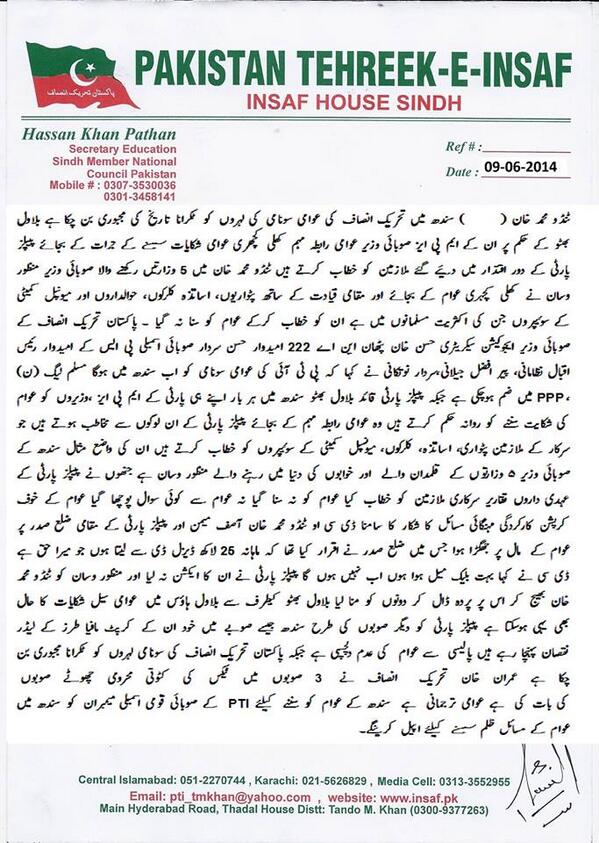 PAKISTAN TEHREEK-E-INSAF
پاکستان تحریک انصاف
INSAF HOUSE SINDH
Hassan Khan Pathan
Secretary Education
Sindh Member National
Council Pakistan
Mobile # : 0307-3530036
0301-3458141
Ref # :
Date : 09-06-2014
ٹنڈو محمد خان ( ) سندھ میں تحریک انصاف کی عوامی سونامی کی لہروں کو ٹکرانا تاریخ کی مجبوری بن چکا ہے بلاول
بھٹو کے حکم پر ان کے ایم پی ایز صوبائی وزیر عوامی رابطہ مہم کھلی کچہری عوامی شکایات سننے کے جرات کے بجائے پیپلز
پارٹی کے دور اقتدار میں دیئے گئے ملازمین کو خطاب کرتے ہیں ٹنڈو محمد خان میں 5 وزارتیں رکھنے والا صوبائی وزیر منظور
وسان نے کھلی کچہری عوام کے بجائے اور مقامی قیادت کے ساتھ پٹواریوں، اساتذہ کلرکوں، حوالداروں اور میونپل کمیٹی
کے سوئیپروں جن کی اکثریت مسلمانوں میں ہے ان کو خطاب کرکے عوام کو سنا نہ گیا ۔ پاکستان تحریک انصاف کے
صوبائی وزیر ایجوکیشن سیکریٹری حسن خان پٹھان این اے 222 امیدوار حسن سردار صوبائی اسمبلی پی ایس کے امیدوار رئیس
اقبال نظامانی، پیر افضل جیلانی،سردار نوتکانی نے کہا کہ پی ٹی آئی کی عوامی سونامی کو اب سندھ میں ہوگا مسلم لیگ (ن)
PPP، میں ضم ہوچکی ہے جبکہ پیپلز پارٹی قائد بلاول بھٹو سندھ میں ہر بار اپنے ہی پارٹی کے ایم پی ایز ،وزیروں کو عوام
کی شکایت سننے کو روانہ حکم کرتے ہیں وہ عوامی رابطہ مہم کے بجائے پیپلز پارٹی کے ان لوگوں سے مخاطب ہوتے ہیں جو
سرکار کے ملازمین پٹواری، اساتذہ، کلرکوں، میونسپل کمیٹی کے سوئیپروں کو خطاب کرتے ہیں ان کی واضع مثال سندھ کے
صوبائی وزیر ۵ وزارتوں کے قلمدان والے اور خوابوں کی دنیا میں رہنے والے منظور وسان ہے جنھوں نے پیپلز پارٹی کے
عہدی داروں تقاریر سرکاری ملازمین کو خطاب کیا عوام کو نہ سنا گیا نہ عوام سے کوئی سوال پوچھا گیا عوام کے خوف
کرپشن کارکردگی مہنگائی مسائل کا شکار کا سامنا ڈی سی او ٹنڈو محمد خان آصف میمن اور پیپلز پارٹی کے مقامی ضلع صدر پر
عوام کے مال پر جھگڑا ہوا جس میں ضلع صدر نے اقرار کیا تھا کہ ماہانہ 25 لاکھ ڈیزل ڈی سے لیتا ہوں جو میرا حق ہے
ڈی سی نے کہا بہت بلیک میل ہوا ہوں اب نہیں ہوں گا پیپلز پارٹی نے ان کا ایکشن نہ لیا اور منظور وسان کو ٹنڈو محمد
خان بھیج کر اس پر پردہ ڈال کر دونوں کو منا لیا بلاول بھٹو کیطرف سے بلاول ہاؤس میں عوامی سیل شکایات کا حال
بھی یہی ہوسکتا ہے پیپلز پارٹی کو دیگر صوبوں کی طرح سندھ جیسے صوبے میں خود ان کے کرپٹ مافیا طرز کے لیڈر
نقصان پہنچا رہے ہیں پالیسی سے عوام کی عدم دلچسپی ہے جبکہ پاکستان تحریک انصاف کی سونامی لہروں کو ٹکرانا مجبوری بن
چکا ہے عمران خان تحریک انصاف نے 3 صوبوں میں ٹیکس کی کٹوتی محرومی چھوٹے صوبوں
کی بات کی ہے عوامی ترجمانی ہے سندھ کے عوام کو سننے کیلئے PTI کے صوبائی قومی اسمبلی میمبران کو سندھ میں
عوام کے مسائل ظلم سننے کیلئے اپیل کرینگے۔
Central Islamabad: 051-2270744 , Karachi: 021-5626829 , Media Cell: 0313-3552955
Email: pti_tmkhan@yahoo.com , website: www.insaf.pk
Main Hyderabad Road, Thadal House Distt: Tando M. Khan (0300-9377263)